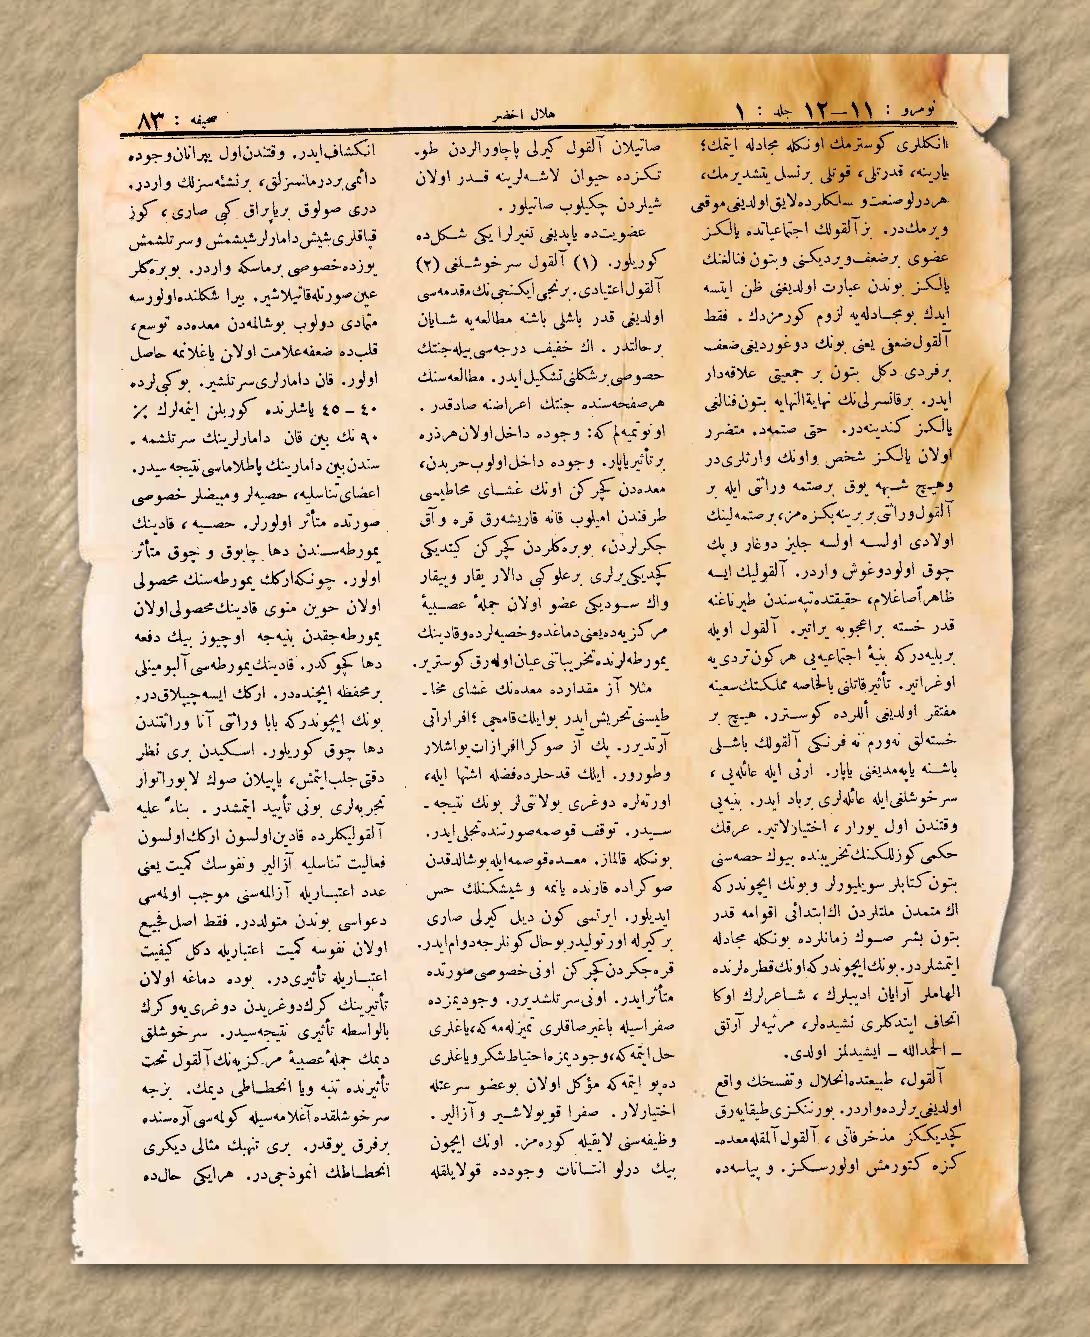 نومرو : ١١—١٢ جلد : ١
هلال اخضر
صحیفه : ٨٣
انكللری كوسترمك اونكله مجادله ایتمك؛
یارینه، قدرتلی، قوتلی برنسل یتشدیرمك،
هردرلو صنعت و سلكلرده لایق اولدیغی موقعی
ویرمك‌در. بز آلقولك اجتماعیاتده یالكز
عضوی برضعف ویردیكنی وبتون فنالغنك
یالكز بوندن عبارت اولدیغنی ظن ایتسه
ایدك بومجادله‌یه لزوم كورمزدك. فقط
آلقول ضعفی یعنی بونك دوغوردیغی ضعف
برفردی دكل بتون بر جمعیتی علاقه‌دار
ایدر. برقانسرلی‌نك نهایةالنهایه بتون فنالغی
یالكز كندینه‌در. حتی صتمه‌ده. متضرر
اولان یالكز شخص واونك وارثلری‌در
وهیچ شبهه یوق برصتمه وراثتی ایله بر
آلقول وراثتی بربرینه بكزه‌مز، برصتمه‌لینك
اولادی اولسه اولسه جلیز دوغار وپك
چوق اولودوغوش واردر. آلقولیك ایسه
ظاهراً صاغلام، حقیقتده تپه‌سندن طیرناغنه
قدر خسته براعجوبه یراتیر. آلقول اویله
بربلیه‌دركه بنیهٔ اجتماعیه‌یی هركون تردی‌یه
اوغراتیر. تأثیر قاتلنی بالخاصه مملكتك سعینه
مفتقر اولدیغی أللرده كوسترر. هیچ بر
خسته‌لق نه‌ورم نه فرنكی آلقولك باشلی
باشنه یاپه‌مدیغنی یاپار. ارثی ایله عائله‌یی،
سرخوشلغی ایله عائله‌لری برباد ایدر. بنیه‌یی
وقتندن اول یورار، اختیارلاتیر. عرقك
حكمی كوزللكینك تخریبنده بیوك حصه‌سنی
بتون كتابلر سویلیورلر وبونك ایچوندركه
اك متمدن ملتلردن اك ابتدائی اقوامه قدر
بتون بشر صوك زمانلرده بونكله مجادله
ایتمشلردر. بونك ایچوندركه اونك قطره‌لرنده
الهاملر آرایان ادیبلرك، شاعرلرك اوكا
اتحاف ایتدكلری نشیده‌لر، مرثیه‌لر آرتق
ـ الحمدالله ـ ایشیدلمز اولدی.
آلقول، طبیعتده انحلال وتفسخك واقع
اولدیغی یرلرده واردر. بورننكزی طیقایه‌رق
كچدیككز مذخرفاتی، آلقول آلمقله معده‌ـ
كزه كتورمش اولورسكز. و پیاسه‌ده
صاتیلان آلقول كیرلی پاچاورالردن طو.
تكزده حیوان لاشه‌لرینه قدر اولان
شیلردن چكیلوب صاتیلور.
عضویت‌ده یاپدیغی تغیرلر ایكی شكل‌ده
كوریلور. (١) آلقول سرخوشلغی (٢)
آلقول اعتیادی. برنجی ایكنجی‌نك مقدمه‌سی
اولدیغی قدر باشلی باشنه مطالعه‌یه شایان
برحالتدر. اك خفیف درجه‌سی بیله جنتك
خصوصی برشكلنی تشكیل ایدر. مطالعه‌سنك
هرصفحه‌سنده جنتك اعراضنه صادقدر.
اونوتمیه‌لم كه: وجوده داخل اولان هرذره
برتأثیر یاپار. وجوده داخل اولوب حربدن،
معده‌دن كچركن اونك غشای مخاطیسی
طرفندن امیلوب قانه قاریشه‌رق قره وآق
جكرلردن، بوبره‌كلردن كچركن كیتدیكی
كچدیكی یرلری برعلو كبی دالار یقار وییقار
واك سودیكی عضو اولان جملهٔ عصبیهٔ
مركزیه‌ده یعنی دماغده وخصیه‌لرده وقادینك
یمورطه‌لرنده تخریباتنی عیان اوله‌رق كوستریر.
مثلا آز مقدارده معده‌نك غشای مخا.
طیسنی تحریش ایدر بوایلك قامچی؛ افراراتی
آرتدیرر. پك آز صوكرا افرازات یواشلار
وطورور. ایلك قدحلرده فضله اشتها ایله،
اورته‌لره دوغری بولانتی‌لر بونك نتیجه ـ
سیدر. توقف قوصمه صورتنده تجلی ایدر.
بونكله قالماز. معده قوصمه ایله بوشالدقدن
صوكراده قارنده یانمه و شیشكنلك حس
ایدیلور. ایرتسی كون دیلی كیرلی صاری
بركیرله اورتولیدر بوحال كونلرجه دوام ایدر.
قره‌جكردن كچركن اونی خصوصی صورتده
متأثر ایدر. اونی سرتلشدیرر. وجودیمزده
صفراسیله باغیرصاقلری تمیزله‌مه‌كه، یاغلری
حل ایتمه‌كه، وجودیمزه احتیاط شكر ویاغلری
ده‌پو ایتمه‌كه مؤكل اولان بوعضو سرعتله
اختیارلار. صفرا قویولاشیر وآزالیر.
وظیفه‌سنی لایقیله كوره‌مز. اونك ایچون
بیك درلو انتانات وجودده قولایلقله
انكشاف ایدر. وقتندن اول ییپرانان وجوده
دائمی بردرمانسزلق، برنشئه‌سزلك واردر.
دری صولوق بریاپراق كبی صاری، كوز
قپاقلری شیش دامارلر شیشمش وسرتلشمش
یوزده خصوصی برماسكه واردر. بوبره‌كلر
عین صورتله قاتیلاشیر. بیرا شكلنده اولورسه
متمادی دولوب بوشالمه‌دن معده‌ده توسع،
قلب‌ده ضعفه علامت اولان یاغلانمه حاصل
اولور. قان دامارلری سرتلشیر. بوكبی‌لرده
٤٠ ـ ٤٥ یاشلرنده كوریلن ایتمه‌لرك ٪
٩٠ نك بین قان دامارلرینك سرتلشمه .
سندن بین دامارینك پاطلاماسی نتیجه سیدر.
اعضای تناسلیه، خصیه‌لر ومبیضلر خصوصی
صورتده متأثر اولورلر. خصیه، قادینك
یمورطه‌سندن دها چابوق و چوق متأثر
اولور. چونكه اركك یمورطه‌سنك محصولی
اولان حوین منوی قادینك محصولی اولان
یمورطه‌جقدن بنیه‌جه اوچیوز بیك دفعه
دها كوچوكدر. قادینك یمورطه‌سی آلبومینلی
برمحفظه ایچنده‌در. اركك ایسه چیپلاق‌در.
بونك ایچوندركه بابا وراثتی آنا وراثتندن
دها چوق كوریلور. اسكیدن بری نظر
دقتی جلب ایتمش، یاپیلان صوك لابوراتوار
تجربه‌لری بونی تأیید ایتمشدر. بناءً علیه
آلقولیكلرده قادین اولسون اركك اولسون
فعالیت تناسلیه آزالیر ونفوسك كمیت یعنی
عدد اعتباریله آزالمه‌سنی موجب اولمه‌سی
دعواسی بوندن متولددر. فقط اصل فجیع
اولان نفوسه كمیت اعتباریله دكل كیفیت
اعتباریله تأثیری‌در. بوده دماغه اولان
تأثیرینك كرك دوغریدن دوغری‌یه وكرك
بالواسطه تأثیری نتیجه‌سیدر. سرخوشلق
دیمك جملهٔ عصبیهٔ مركزیه‌نك آلقول تحت
تأثیرنده تنبه ویا انحطاطی دیمك. بزجه
سرخوشلقده آغلامه‌سیله كولمه‌سی آره‌سنده
برفرق یوقدر. بری تنبهك مثالی دیكری
انحطاطك انموذجی‌در. هرایكی حال‌ده